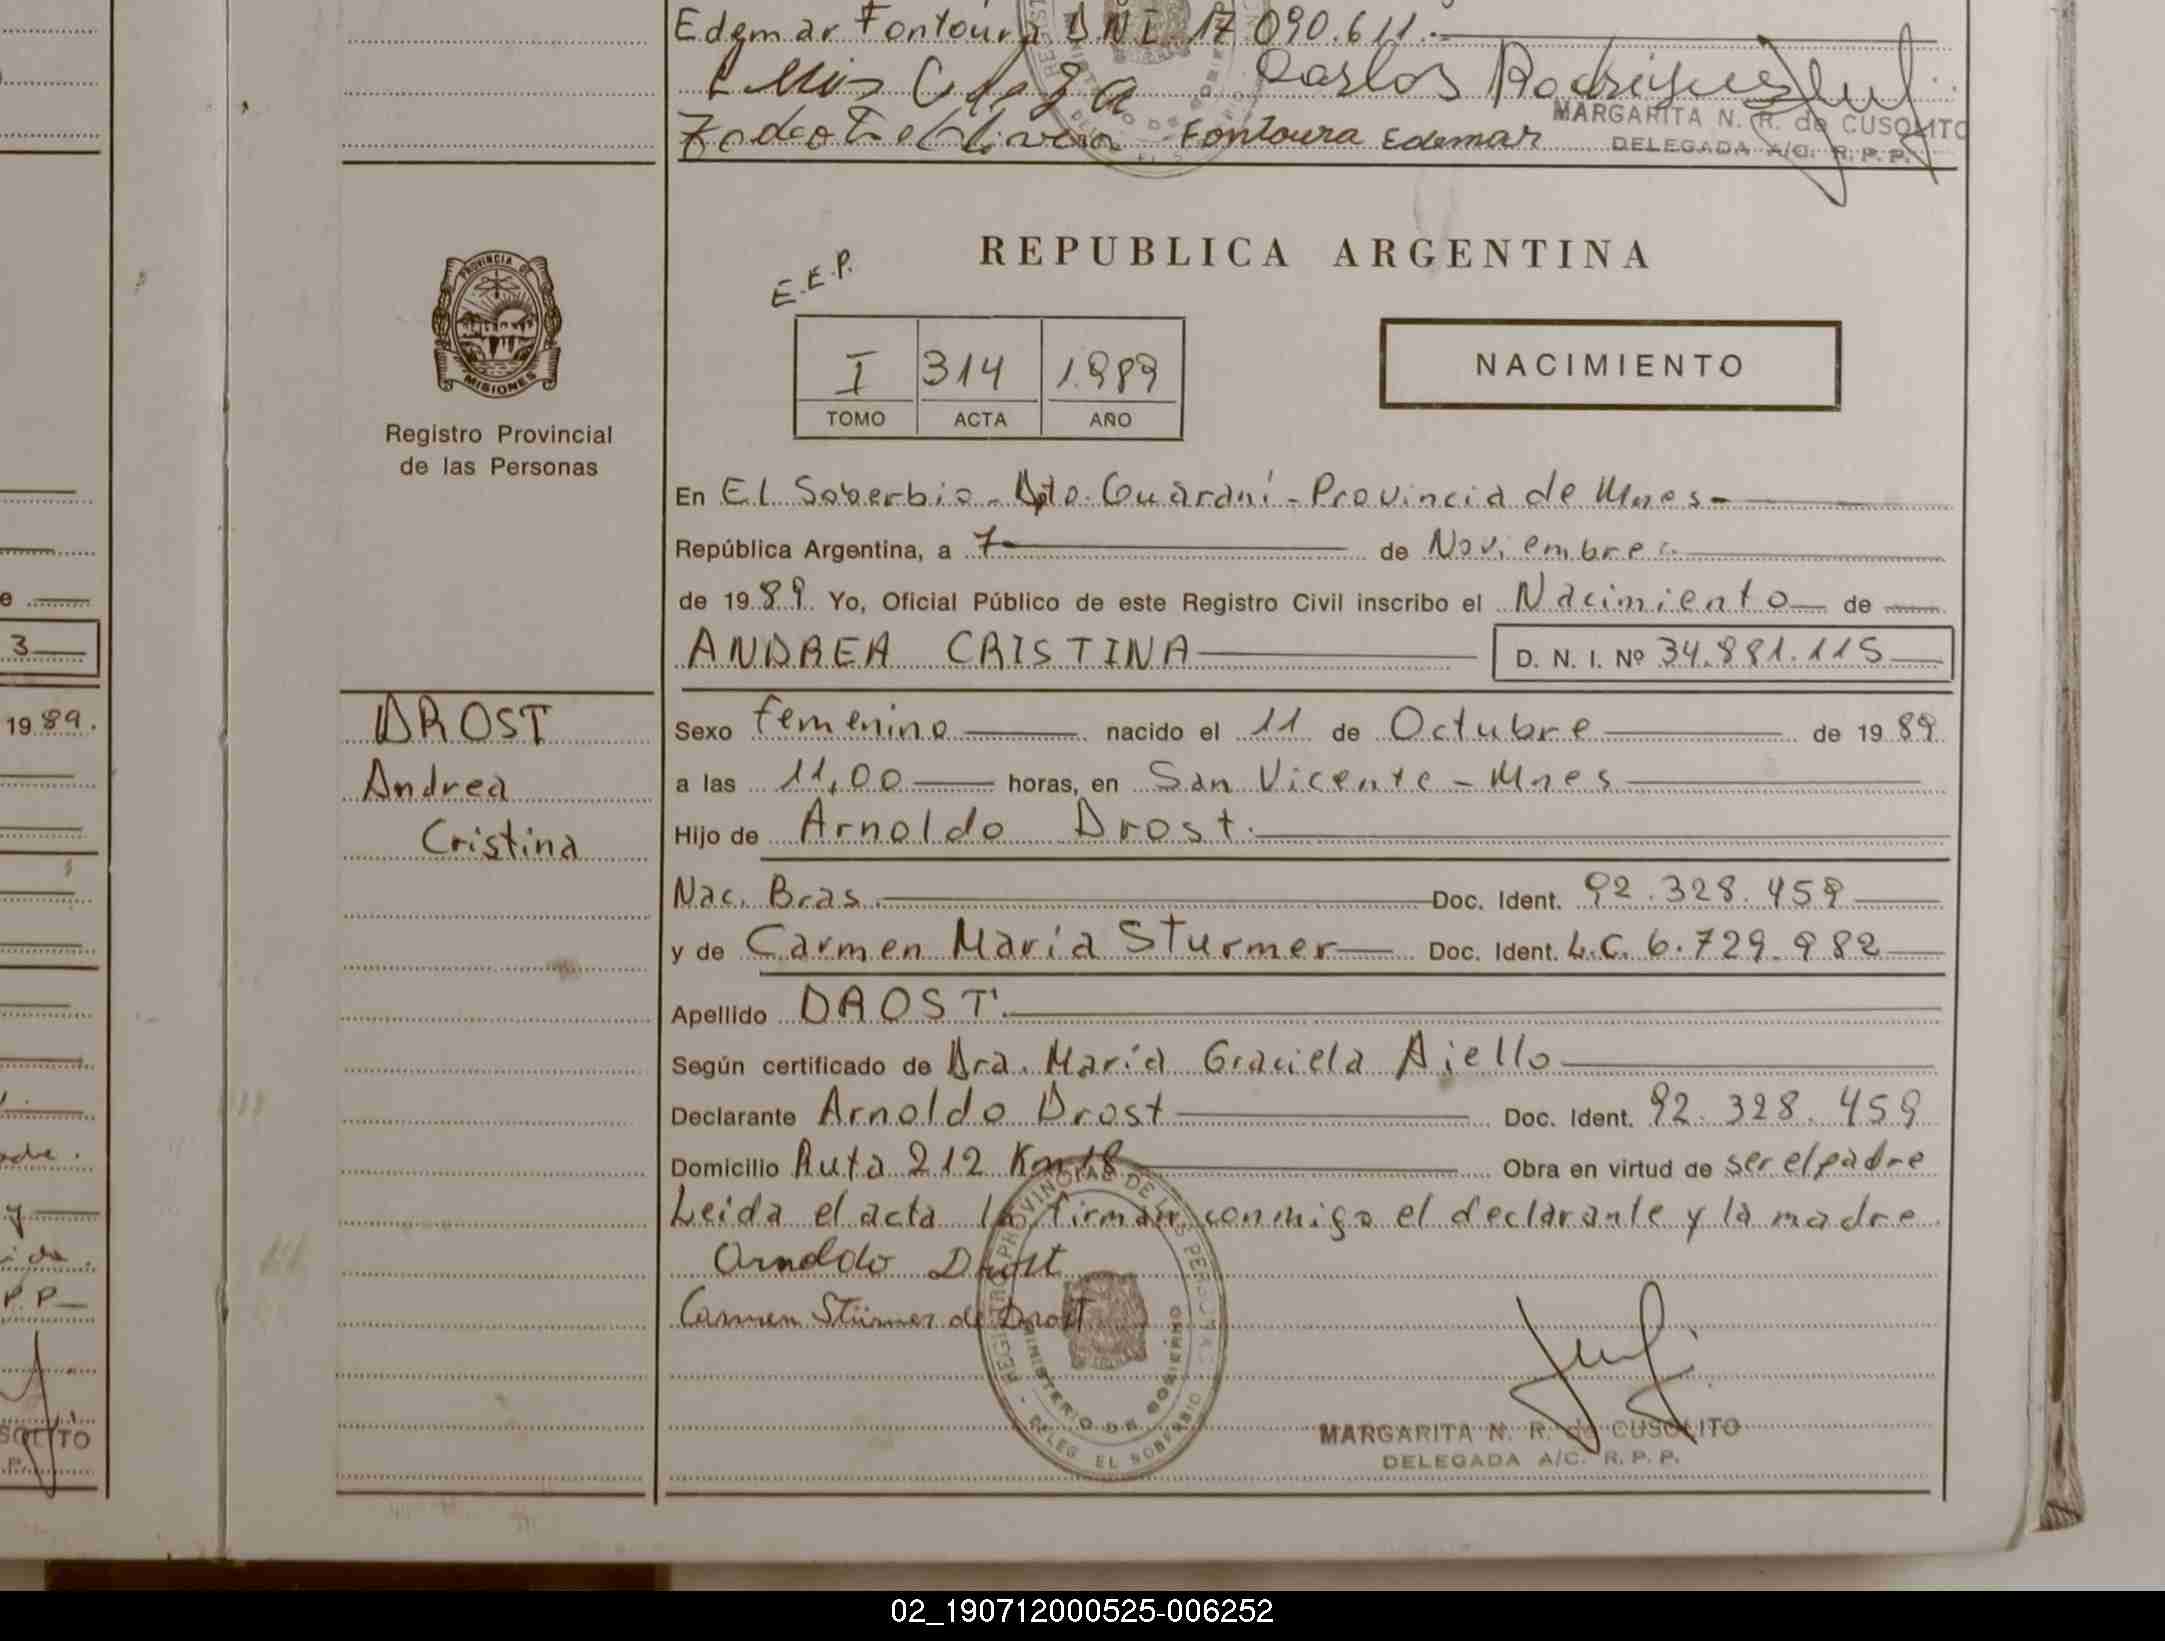 Edemar Fontoura D.N.I. 17.090.611.-
Luis Carlos Rodrigues
Fontoura Edemar
MARGARITA N. R. de CUSOLITO
DELEGADA A/C. R. P. P.
REPUBLICA ARGENTINA
E.E.P.
I 314 1.989
TOMO ACTA AÑO
NACIMIENTO
PROVINCIA DE
MISIONES
Registro Provincial
de las Personas
En El Soberbio - Dpto. Guaraní - Provincia de Mnes -
República Argentina, a 7 de Noviembre
de 1989 Yo, Oficial Público de este Registro Civil inscribo el Nacimiento de
ANDREA CRISTINA D. N. I. Nº 34.881.115
DROST
Andrea
Cristina
Sexo femenino nacido el 11 de Octubre de 1989
a las 11,00 horas, en San Vicente - Mnes
Hijo de Arnoldo Drost.
Nac. Bras. Doc. Ident. 92.328.459
y de Carmen María Sturmer Doc. Ident. L.C. 6.729.982
Apellido DROST.
Según certificado de Dra. María Graciela Aiello
Declarante Arnoldo Drost Doc. Ident. 92.328.459
Domicilio Ruta 212 Km 18 Obra en virtud de ser el padre
Leida el acta la firman conmigo el declarante y la madre.
Arnoldo Drost
Carmen Stürmer de Drost
REGISTRO PROVINCIAL DE LAS PERSONAS
MINISTERIO DE GOBIERNO
DELEG. EL SOBERBIO
MARGARITA N. R. de CUSOLITO
DELEGADA A/C. R. P. P.
3
1989.
P.P
02_190712000525-006252